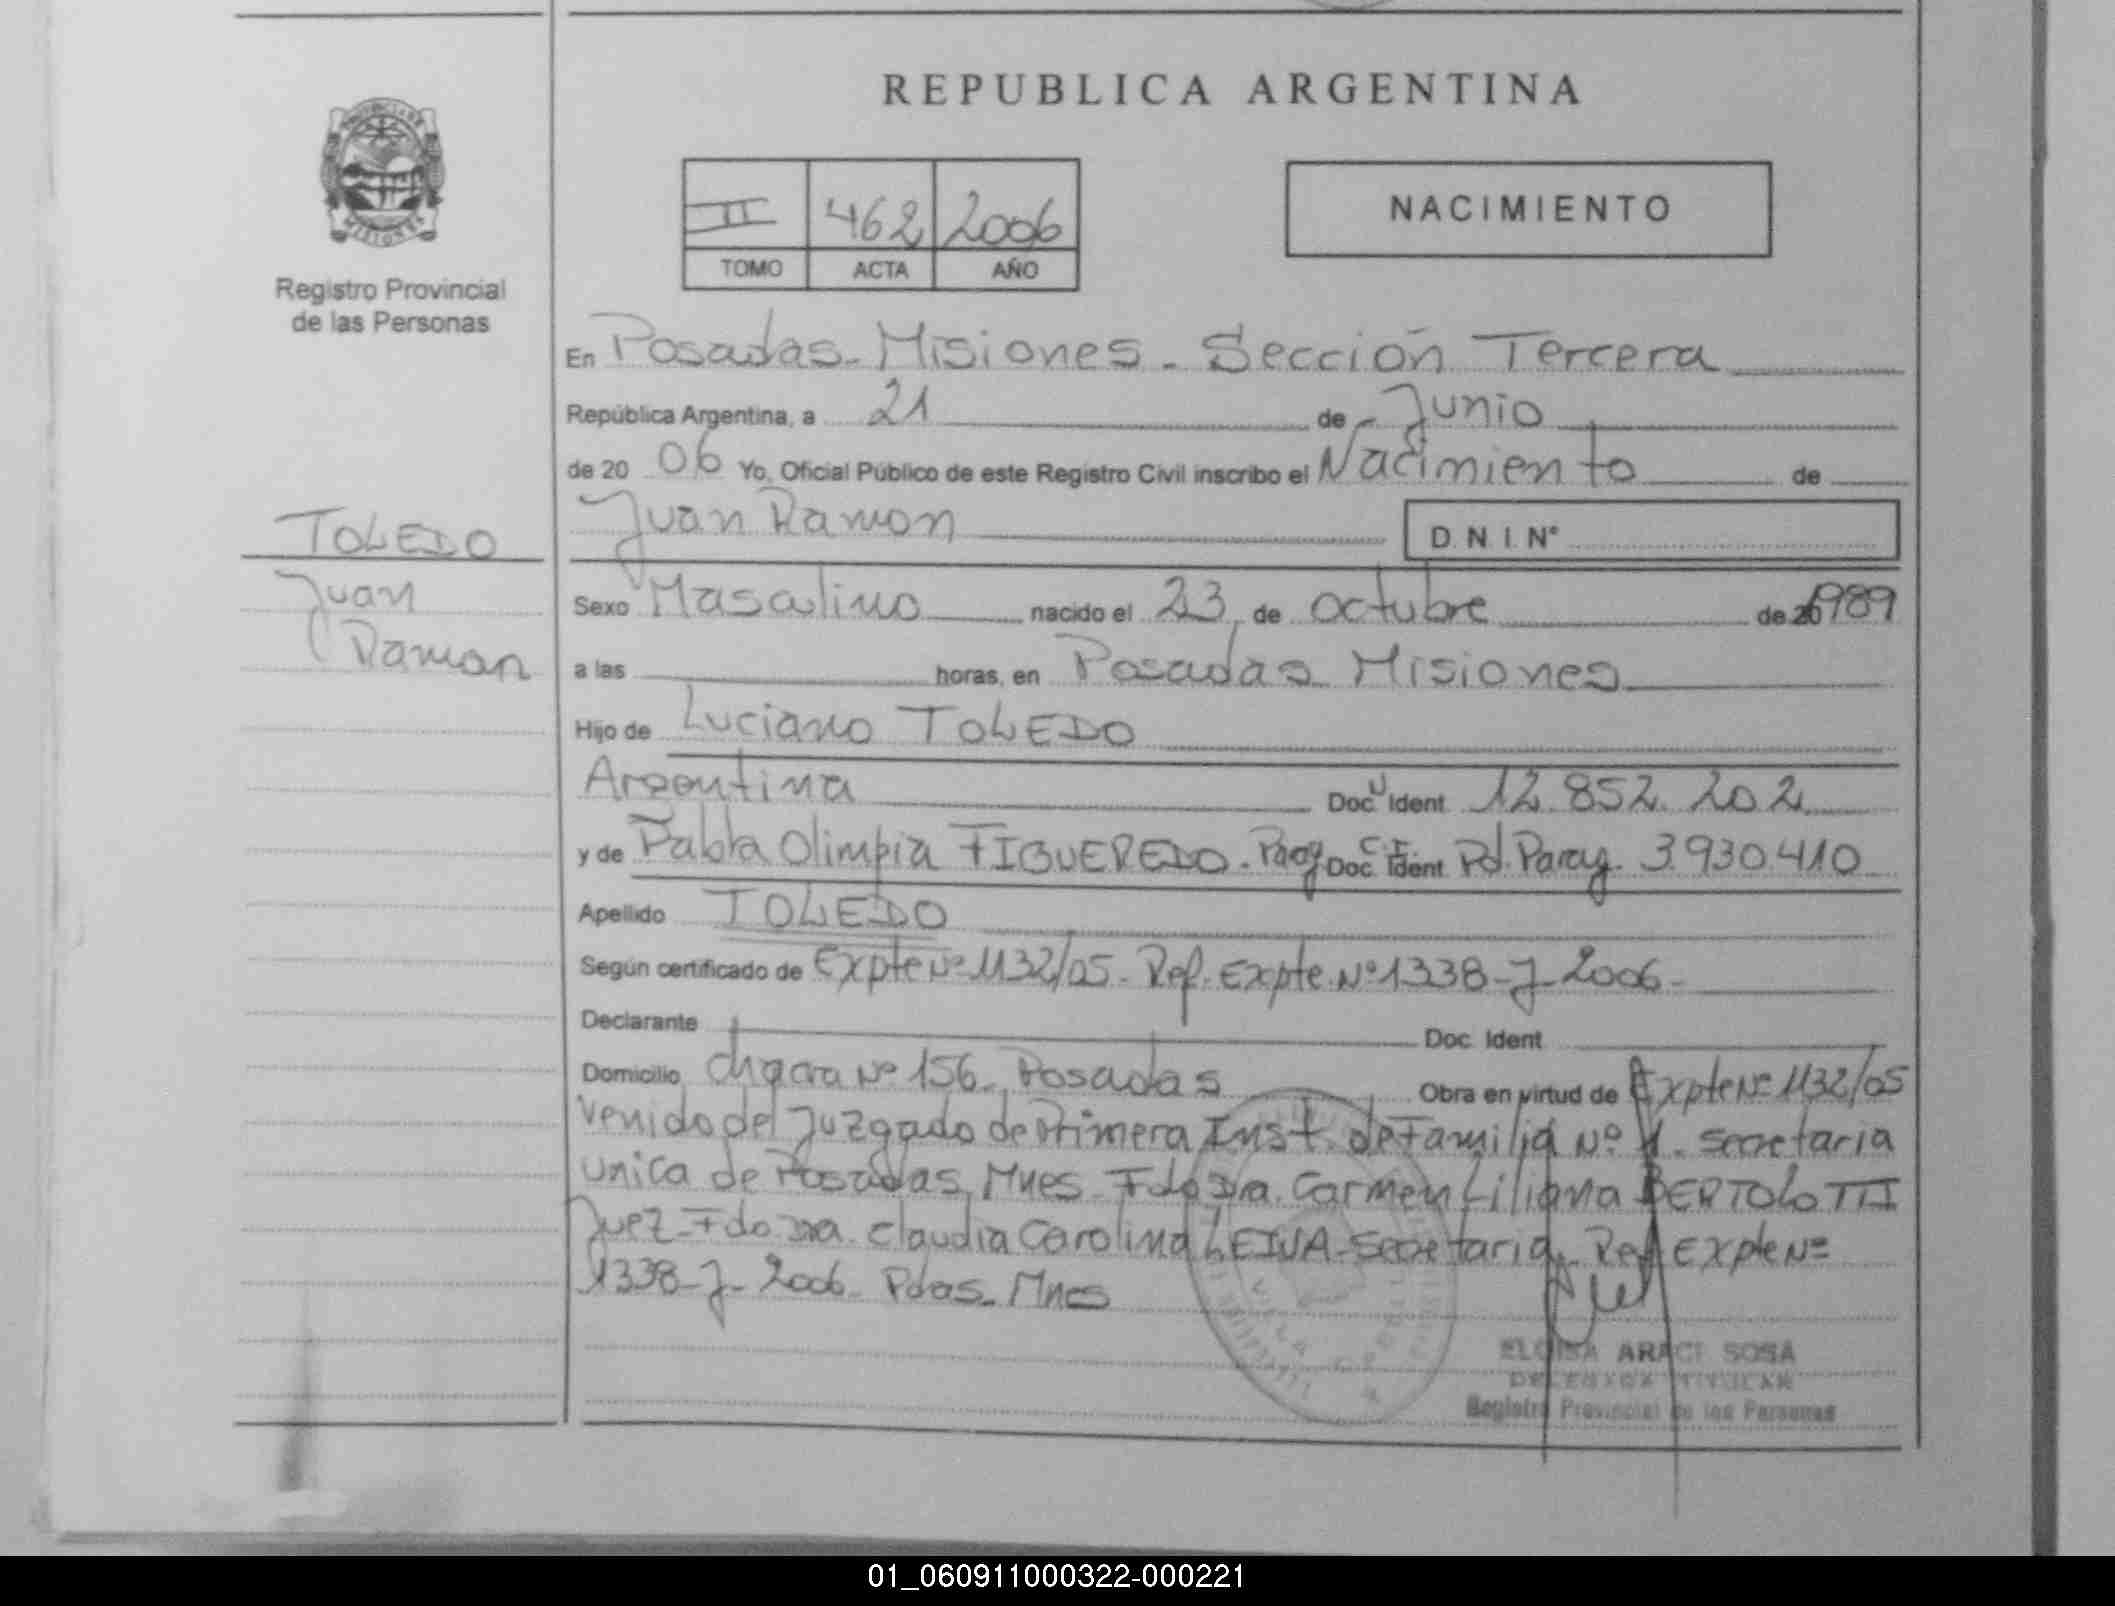 REPUBLICA ARGENTINA
PROVINCIA DE
MISIONES
Registro Provincial
de las Personas
II 462 2006
TOMO ACTA AÑO
NACIMIENTO
En Posadas - Misiones - Sección Tercera
República Argentina, a 21 de Junio
de 20 06 Yo, Oficial Público de este Registro Civil inscribo el Nacimiento de
Juan Ramon D. N. I. N°
TOLEDO
Juan
Ramon
Sexo Masculino nacido el 23 de octubre de 20 1989
a las horas, en Posadas Misiones
Hijo de Luciano TOLEDO
Argentina Doc. Ident. 12.852.202
y de Pabla Olimpia FIGUEREDO - Parag Doc. Ident. C.I. Pd. Parag. 3.930.410
Apellido TOLEDO
Según certificado de Expte Nº 1132/05 - Ref. Expte. Nº 1338-J-2006-
Declarante Doc. Ident.
Domicilio chacra Nº 156 - Posadas Obra en virtud de Expte Nº 1132/05
Venido del Juzgado de Primera Inst. de Familia Nº 1 - secretaria
unica de Posadas, Mnes - Fdo Dra. Carmen Liliana BERTOLOTTI
Juez - Fdo. Dra. Claudia Carolina LEIVA - Secretaria, Ref. Expte Nº
1338-J-2006 - Pdas - Mnes
ELOISA ARACI SOSA
DELEGADA TITULAR
Registro Provincial de las Personas
01_060911000322-000221